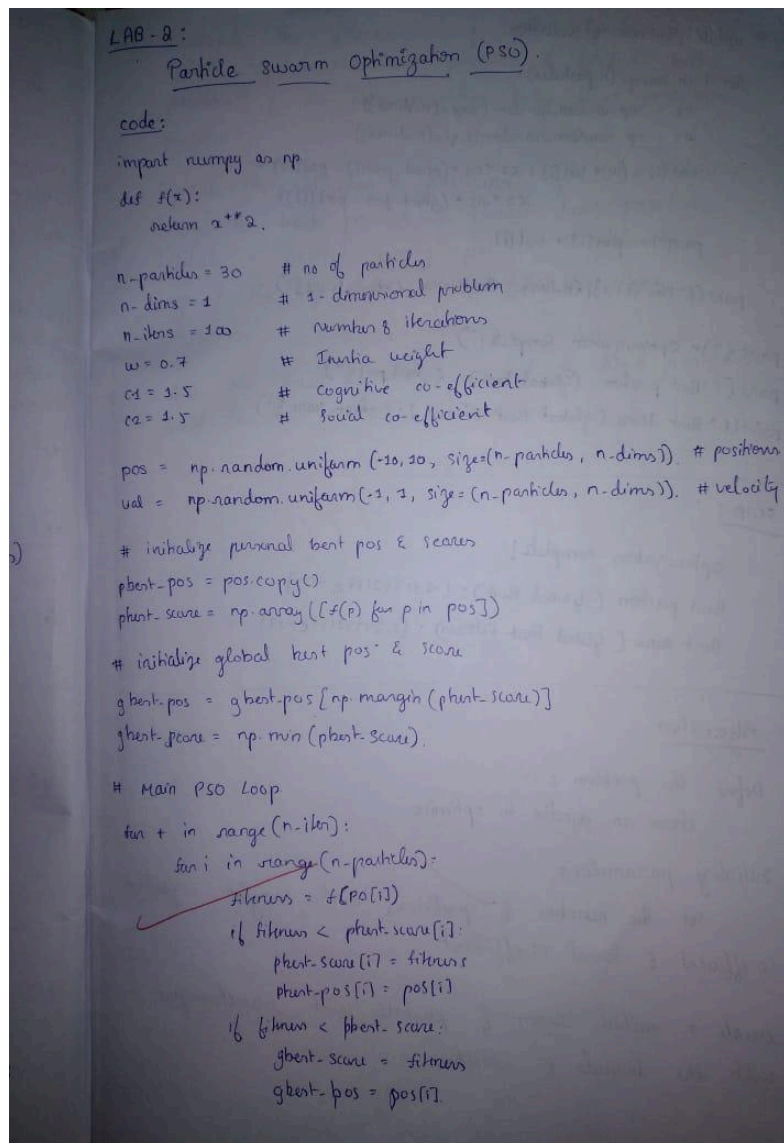 LAB - 2 :
Particle swarm Optimization (PSO).
code:
import numpy as np
def f(x):
return x**2.
n-particles = 30 # no of particles
n-dims = 1 # 1-dimensional problem
n-iters = 100 # Number of iterations
w = 0.7 # Inertia weight
c1 = 1.5 # Cognitive co-efficient
c2 = 1.5 # Social co-efficient
pos = np.random.uniform (-10, 10, size=(n-particles, n-dims)). # positions
val = np.random.uniform (-1, 1, size = (n-particles, n-dims)). # velocity
# initialize personal best pos & scores
pbest-pos = pos.copy()
pbest-score = np.array([f(p) for p in pos])
# initialize global best pos & score
gbest-pos = gbest-pos [np.margin (pbest-score)]
gbest-score = np.min (pbest-score).
# Main PSO Loop
for t in range (n-iter):
for i in range (n-particles):
fitness = f(PO[i])
if fitness < pbest-score[i]:
pbest-score[i] = fitness
pbest-pos[i] = pos[i]
if fitness < pbest-score:
gbest-score = fitness
gbest-pos = pos[i].